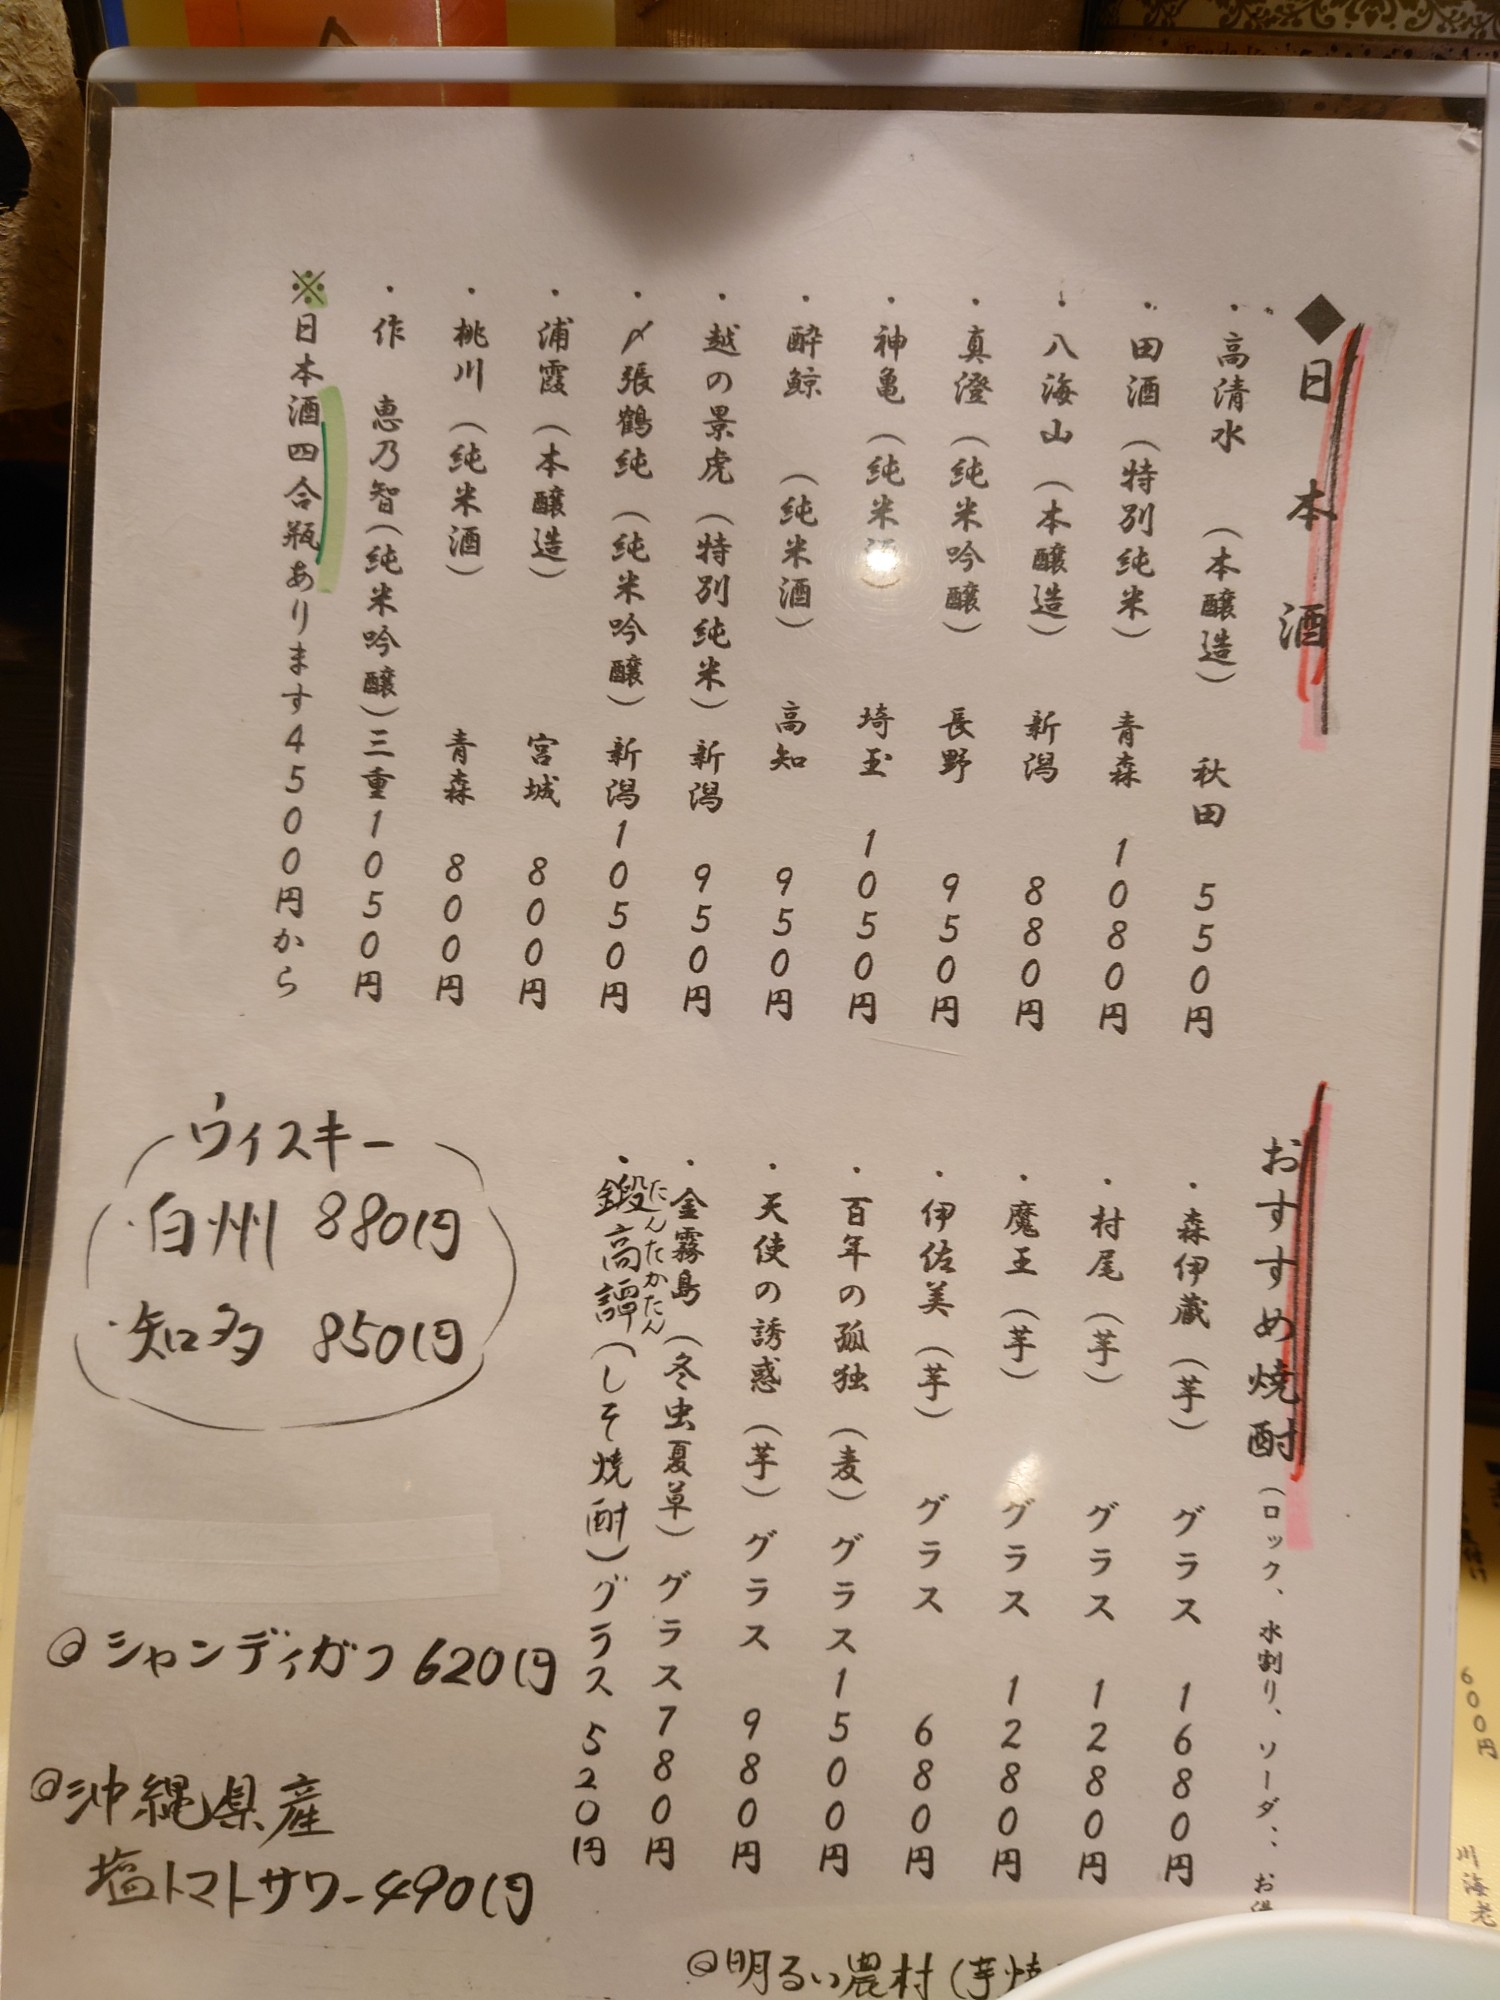 ◆日本酒
・高清水（本醸造）秋田 550円
・田酒（特別純米）青森 1080円
・八海山（本醸造）新潟 880円
・真澄（純米吟醸）長野 950円
・神亀（純米酒）埼玉 1050円
・酔鯨（純米酒）高知 950円
・越の景虎（特別純米）新潟 950円
・〆張鶴純（純米吟醸）新潟 1050円
・浦霞（本醸造）宮城 800円
・桃川（純米酒）青森 800円
・作 恵乃智（純米吟醸）三重 1050円
※日本酒四合瓶あります4500円から
おすすめ焼酎（ロック、水割り、ソーダ、：お
・森伊蔵（芋）グラス 1680円
・村尾（芋）グラス 1280円
・魔王（芋）グラス 1280円
・伊佐美（芋）グラス 680円
・百年の孤独（麦）グラス 1500円
・天使の誘惑（芋）グラス 980円
・金霧島（冬虫夏草）グラス 780円
たんたかたん
・鍛高譚（しそ焼酎）グラス 520円
ウィスキー
・白州 880円
・知多 850円
◎シャンディガフ 620円
◎沖縄県産
塩トマトサワー 490円
◎明るい農村（芋焼
600円
川海老